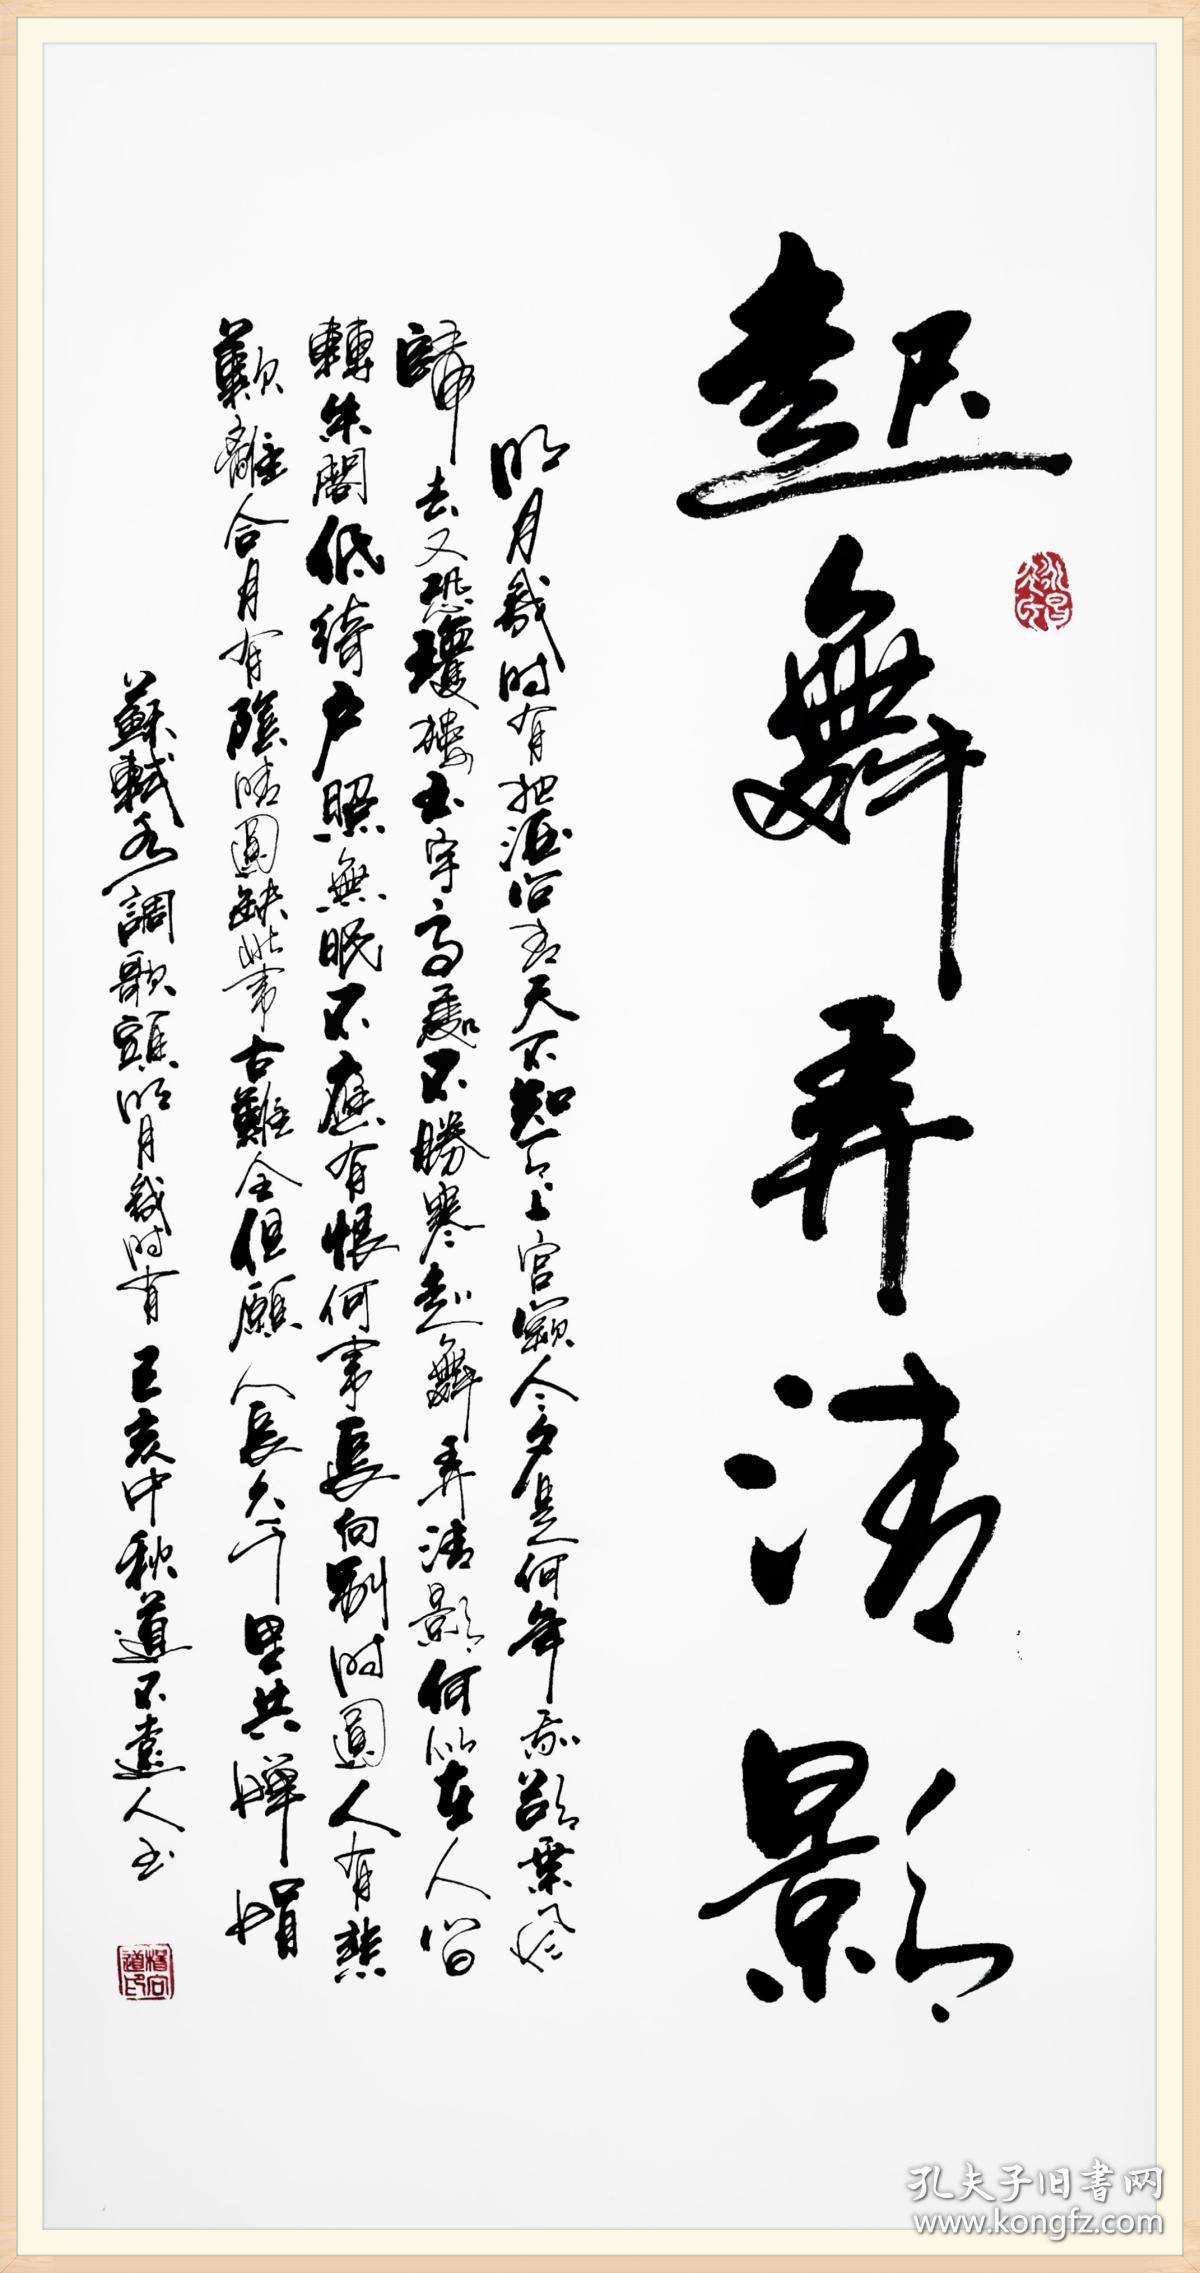 起舞弄清影
明月幾时有把酒问青天不知天上宫闕今夕是何年我欲乘风
歸去又恐瓊樓玉宇高處不勝寒起舞弄清影何似在人间
轉朱閣低綺户照無眠不應有恨何事長向别时圓人有悲
歡離合月有陰晴圆缺此事古難全但願人長久千里共嬋娟
蘇軾水調歌頭明月幾时有 己亥中秋道不遠人书
孔夫子旧书网
www.kongfz.com